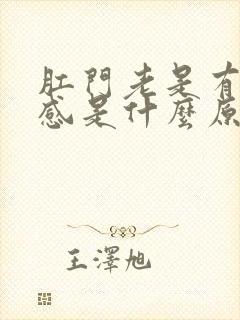 肛門老是有
感是什麼原
王澤旭